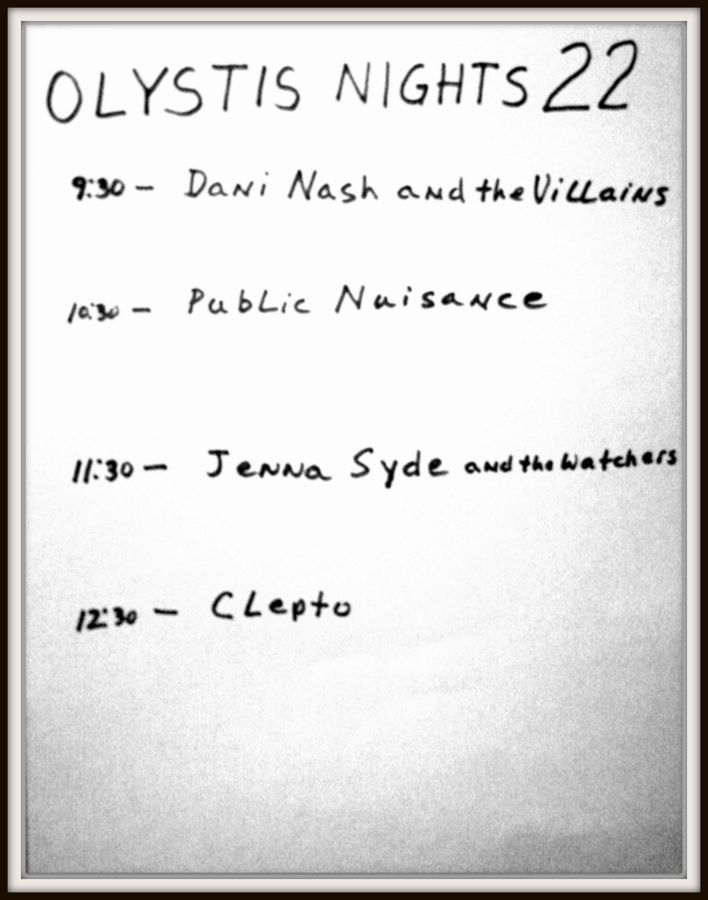 OLYSTIS NIGHTS 22
9:30 - Dani Nash and the Villains
10:30 - Public Nuisance
11:30 - Jenna Syde and the Watchers
12:30 - Clepto